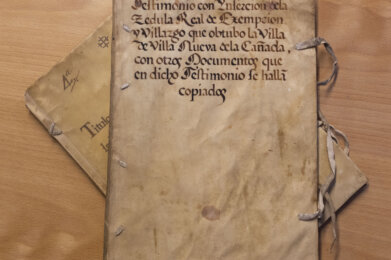 Testimonio con Ynsezcion de la
Zedula Real de Exempcion
y Villazgo que obtubo la Villa
de Villa Nueva de la Cañada,
con otros Documentos que
en dicho Testimonio se hallã
copiados
Titulo